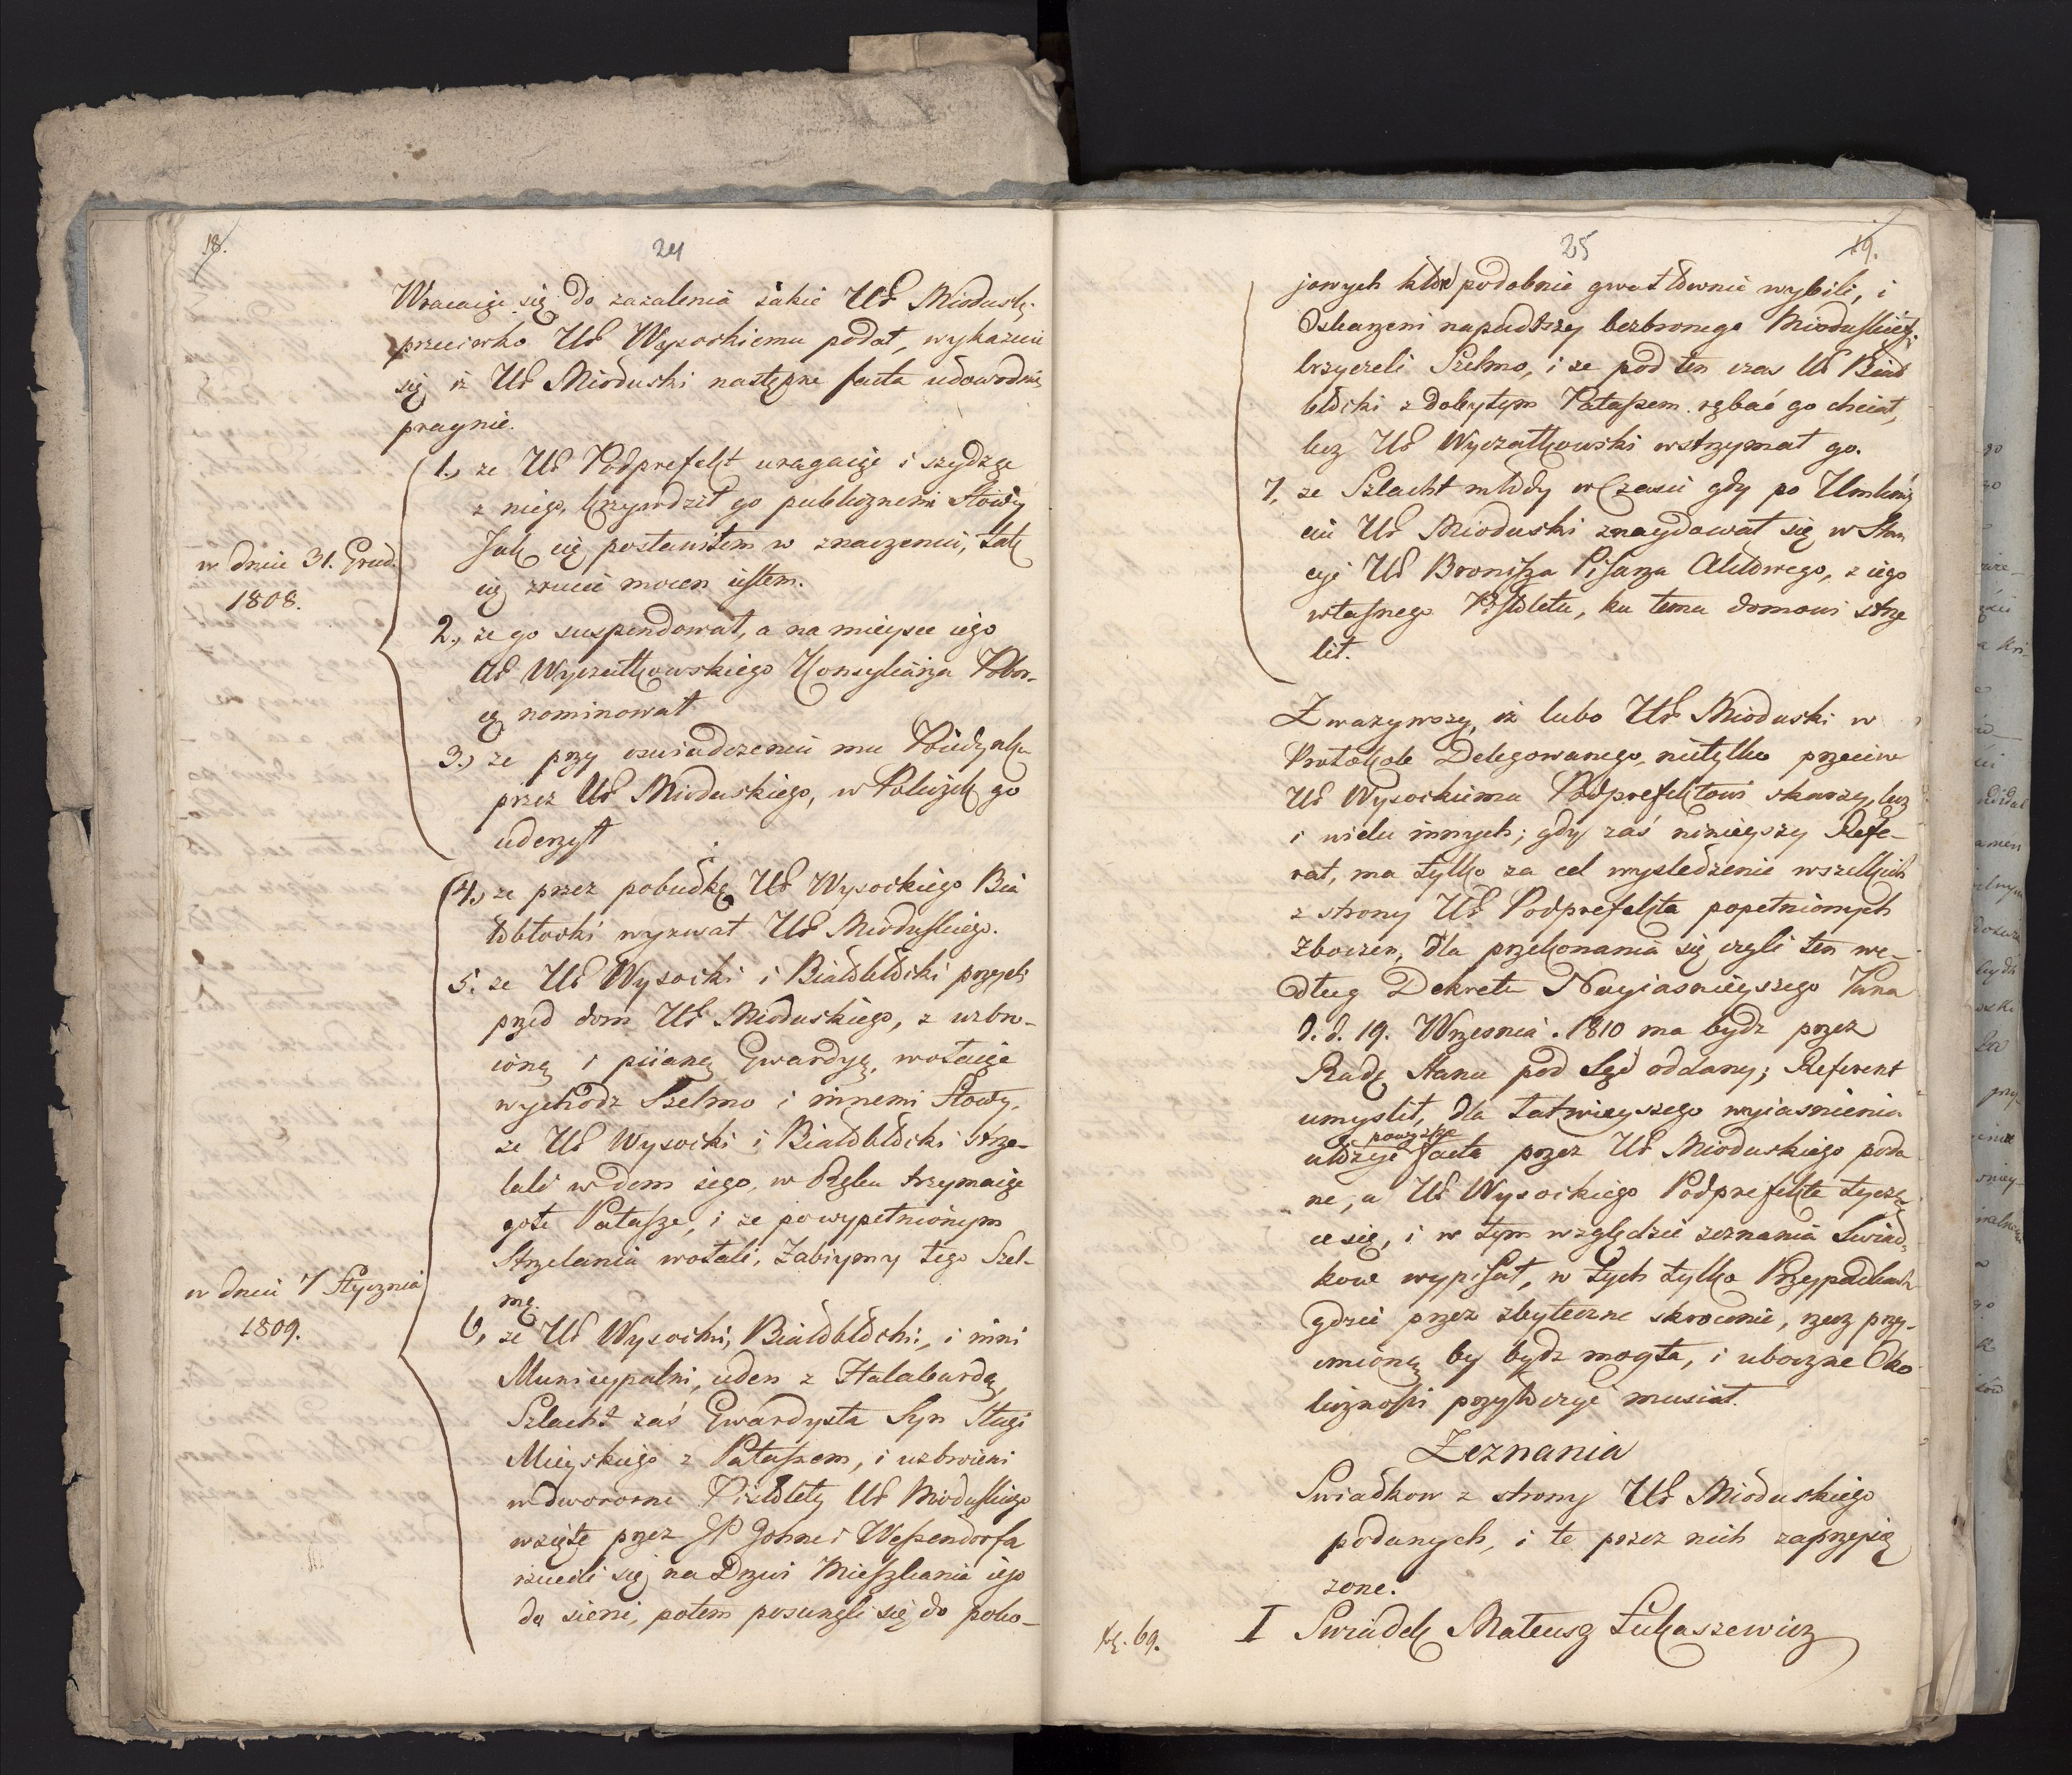 18.
24
Wracaiąc się do zażalenia iakie Ur Mioduski
przeciwko Ur Wysockiemu podał, wykazuie
się iż Ur Mioduski następne facta udowodnić
pragnie.
w dniu 31. Grud.
1808.
1., że Ur Podprefekt uragaiąc i szydząc
z niego, krzywdził go publicznemi Słowy
Jak cię postawiłem w znaczeniu, tak
cię zrucić mocen iestem.
2., że go suspendował, a na mieysce iego
Ur Wyczałkowskiego Konsyliarza Pobor-
cę nominował
3., że przy oświadczeniu mu Poiedynku
przez Ur Mioduskiego, w Policzek go
uderzył
4., że przez pobudkę Ur Wysockiego Bia
łobłocki wyzwał Ur Mioduskiego.
5. że Ur Wysocki i Białobłocki przyszli
przed dom Ur Mioduskiego, z uzbro-
ioną i piianą Gwardyą, wołaiąc
wychodz Szelmo i innemi Słowy,
że Ur Wysocki i Białobłocki strze-
lali w dom iego, w Ręku trzymaiąc
gołe Pałasze, i że po wypełnionym
Strzelaniu wołali, Zabiymy tego Szel-
mę.
w dniu 7 Stycznia
1809.
6, że Ur Wysocki, Białobłocki, i inni
Municypalni, ieden z Halabardą,
Szlacht zaś Gwardysta Syn Sługi
Mieyskiego z Pałaszem, i uzbroieni
w dwororne Pistolety Ur Mioduskiego
wzięte przez JP Johne i Weszendorfa
rzucili się na Drzwi Mieszkania iego
do sieni, potem posunęli się do poko-
25
19.
jowych które podobnie gwałtownie wybili, i
Oskarzeni napadłszy bezbronnego Mioduskiego,
krzyczeli Szelmo, i że pod ten czas Ur Biało
błocki z dobytym Pałaszem rąbać go chciał,
lecz Ur Wyczałkowski wstrzymał go.
7, że Szlacht młody w Czasie gdy po Umknię
ciu Ur Mioduski znaydował się w Stan
cyi Ur Bronisza Pisarza Aktowego, z iego
własnego Pistoletu, ku temu domowi strze
lił.
Zważywszy, iż lubo Ur Mioduski w
Protokole Delegowanego, nietylko przeciw
Ur Wysockiemu Podprefektowi skarzy, lecz
i wielu innych; gdy zaś ninieyszy Refe-
rat, ma tylko za cel wysledzenie wszelkich
z strony Ur Podprefekta popełnionych
zboczen, dla przekonania się czyli ten we-
dług Dekretu Nayiasnieyszego Pana
d. d. 19. Wrzesnia. 1810 ma bydz przez
Radę Stanu pod Sąd oddany; Referent
umyslił, dla łatwieyszego wyiasnienia
powyższe
facta przez Ur Mioduskiego poda
ne, a Ur Wysockiego Podprefekta tyczą
ce się, i w tym względzie zeznania Swiad
kow wypisał, w tych tylko Przypadkach
gdzie przez zbyteczne skrocenie, rzecz przy-
cmioną by bydz mogła, i uboczne Oko
liczności przytoczyć musiał.
Zeznania
Swiadkow z strony Ur Mioduskiego
podanych, i te przez nich zaprzysię
zone.
69.
I Swiadek Mateusz Łukaszewicz